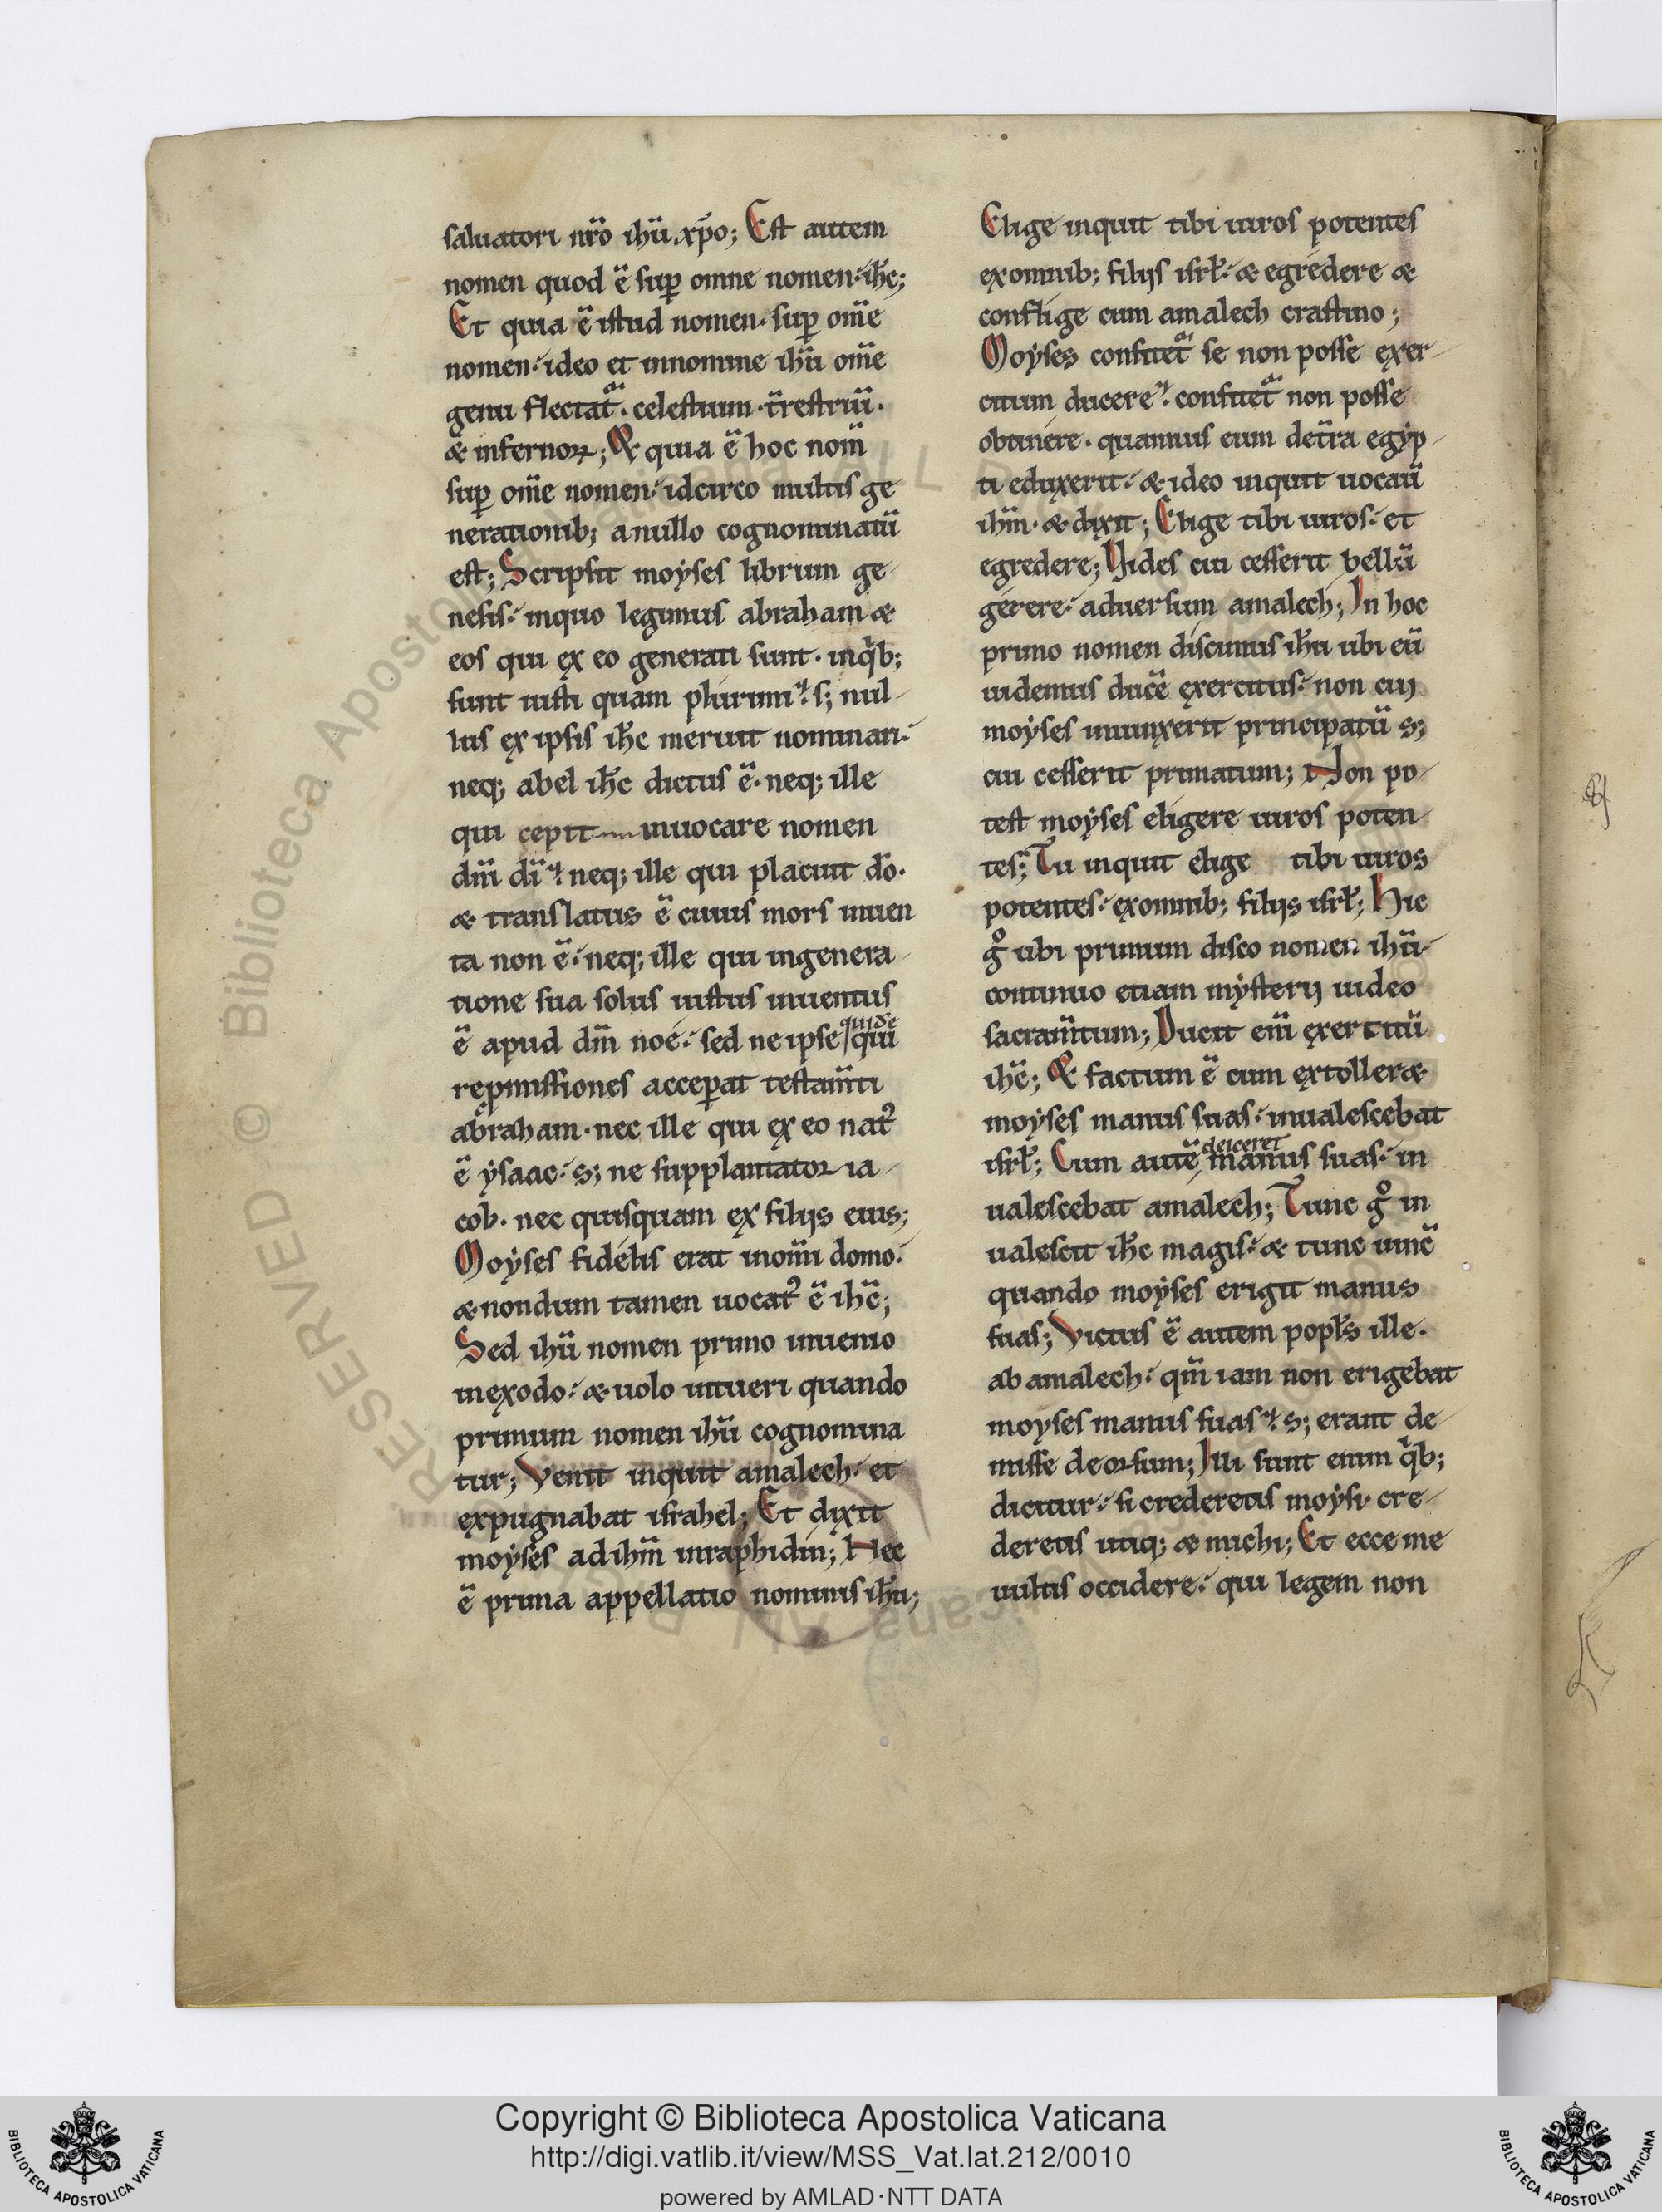 saluatori nr̄o ihū xp̄o; Est autem
nomen quod ē sup̲ omne nomen· ih̅c;
Et quia ē istud nomen· sup̲ om̄e
nomen· ideo et innomine ihū om̄e
genu flectat᷑· celestium· t̄restriū·
& infernoꝝ; & quia ē hoc nom̄
sup̲ om̄e nomen· idcirco multis ge
nerationib; anullo cognominatū
est; Scripsit moẏses librum ge-
nesis· inquo legimus abraham &
eos qui ex eo generati sunt· inq̍b;
sunt iusti quam plurimi· s; nul-
lus ex ipsis ih̅c meruit nominari·
neq; abel ih̅c dictus ē· neq; ille
qui cepit inuocare nomen
dn̄i dī· neq; ille qui placuit dō·
& translatus ē cuius mors inuen
ta non ē· neq; ille qui ingenera-
tione sua solus iustus inuentus
quidē
ē apud dn̄m noe· sed ne ipse qui
repmissiones accep̲at testam̄ti
abraham· nec ille qui ex eo nat᷒
ē ẏsaac· s; ne supplantator ia-
cob· nec quisquam ex filijs eius;
Moẏses fidelis erat inom̄i domo·
& nondum tamen uocat᷒ ē ihc̄;
Sed ihū nomen primo inuenio
inexodo· & uolo intueri quando
primum nomen ihū cognomina
tur; Venit inquit amalech· et
expugnabat israhel; Et dixit
moẏses ad ihm̄ inraphidin; Hec
ē prima appellatio nominis ih̅u;
Elige inquit tibi uiros potentes
exomnib; filijs isrl̄· & egredere &
conflige cum amalech crastino;
Moẏses confitet᷑ se non posse exer-
citum ducere· confitet᷑ non posse
obtinere· quamuis eum det̄ra egẏp-
ti eduxerit· & ideo inquit uocauī
ihm̄· & dixit; Elige tibi uiros· et
egredere; Vides cui cesserit bellū
gerere· aduersum amalech; In hoc
primo nomen discimus ih̅u ubi eū
uidemus ducē exercitus· non cuj
moẏses iniunxerit principatū s;
cui cesserit primatum; Non po-
test moẏses eligere uiros poten-
tes; Tu inquit elige tibi uiros
potentes· exomnib; filijs isrl̄; Hic
g̊ ubi primum disco nomen ihū·
continuo etiam mẏsterij uideo
sacram̄tum; Ducit eni̅ exercitū
ihc̄; & factum ē cum extoller&
moẏses manus suas· inualescebat
deiceret
isrl̄; Cum autē manus suas· in
ualescebat amalech; Tunc g̊ in
ualescit ih̅c magis· & tunc uincī
quando moẏses erigit manus
suas; Victus ē autem popl̄s ille·
ab amalech· qm̄ iam non erigebat
moẏses manus suas· s; erant de-
misse deorsum; Illi sunt enim q̍b;
dicitur· si crederetis moẏsi· cre-
deretis utiq; & michi; Et ecce me
uultis occidere· qui legem non
Copyright © Biblioteca Apostolica Vaticana
http://digi.vatlib.it/view/MSS_Vat.lat.212/0010
powered by AMLAD·NTT DATA
BIBLIOTECA APOSTOLICA VATICANA
BIBLIOTECA APOSTOLICA VATICANA